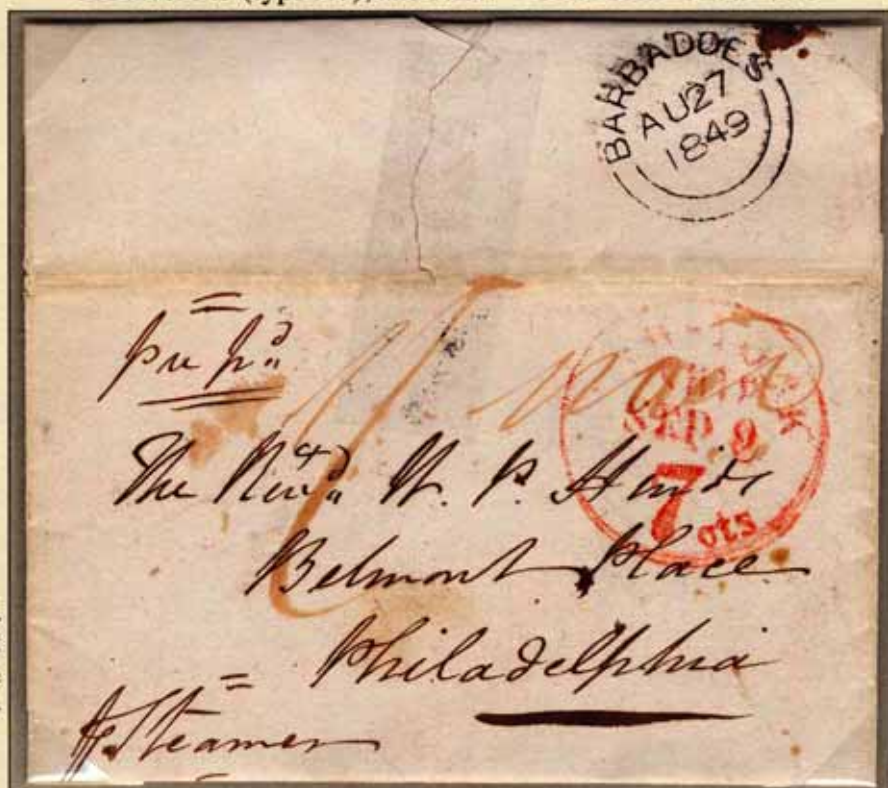 BARBADOES
AU27
1849
pre pd
SHIP
SEP 9
7 cts
The Revd W. P. Hinds
Belmont Place
Philadelphia
Steamer